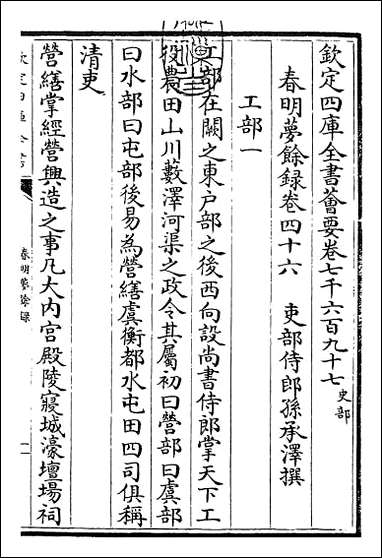 欽定四庫全書薈要卷七千六百九十七 史部
春明夢餘録卷四十六 吏部侍郎孫承澤撰
工部一
工部在闕之東戸部之後西向設尚書侍郎掌天下工
役農田山川藪澤河渠之政令其屬初曰營部曰虞部
曰水部曰屯部後易為營繕虞衡都水屯田四司俱稱
清吏
營繕掌經營興造之事凡大内宫殿陵寢城濠壇場祠
春明夢餘録
一